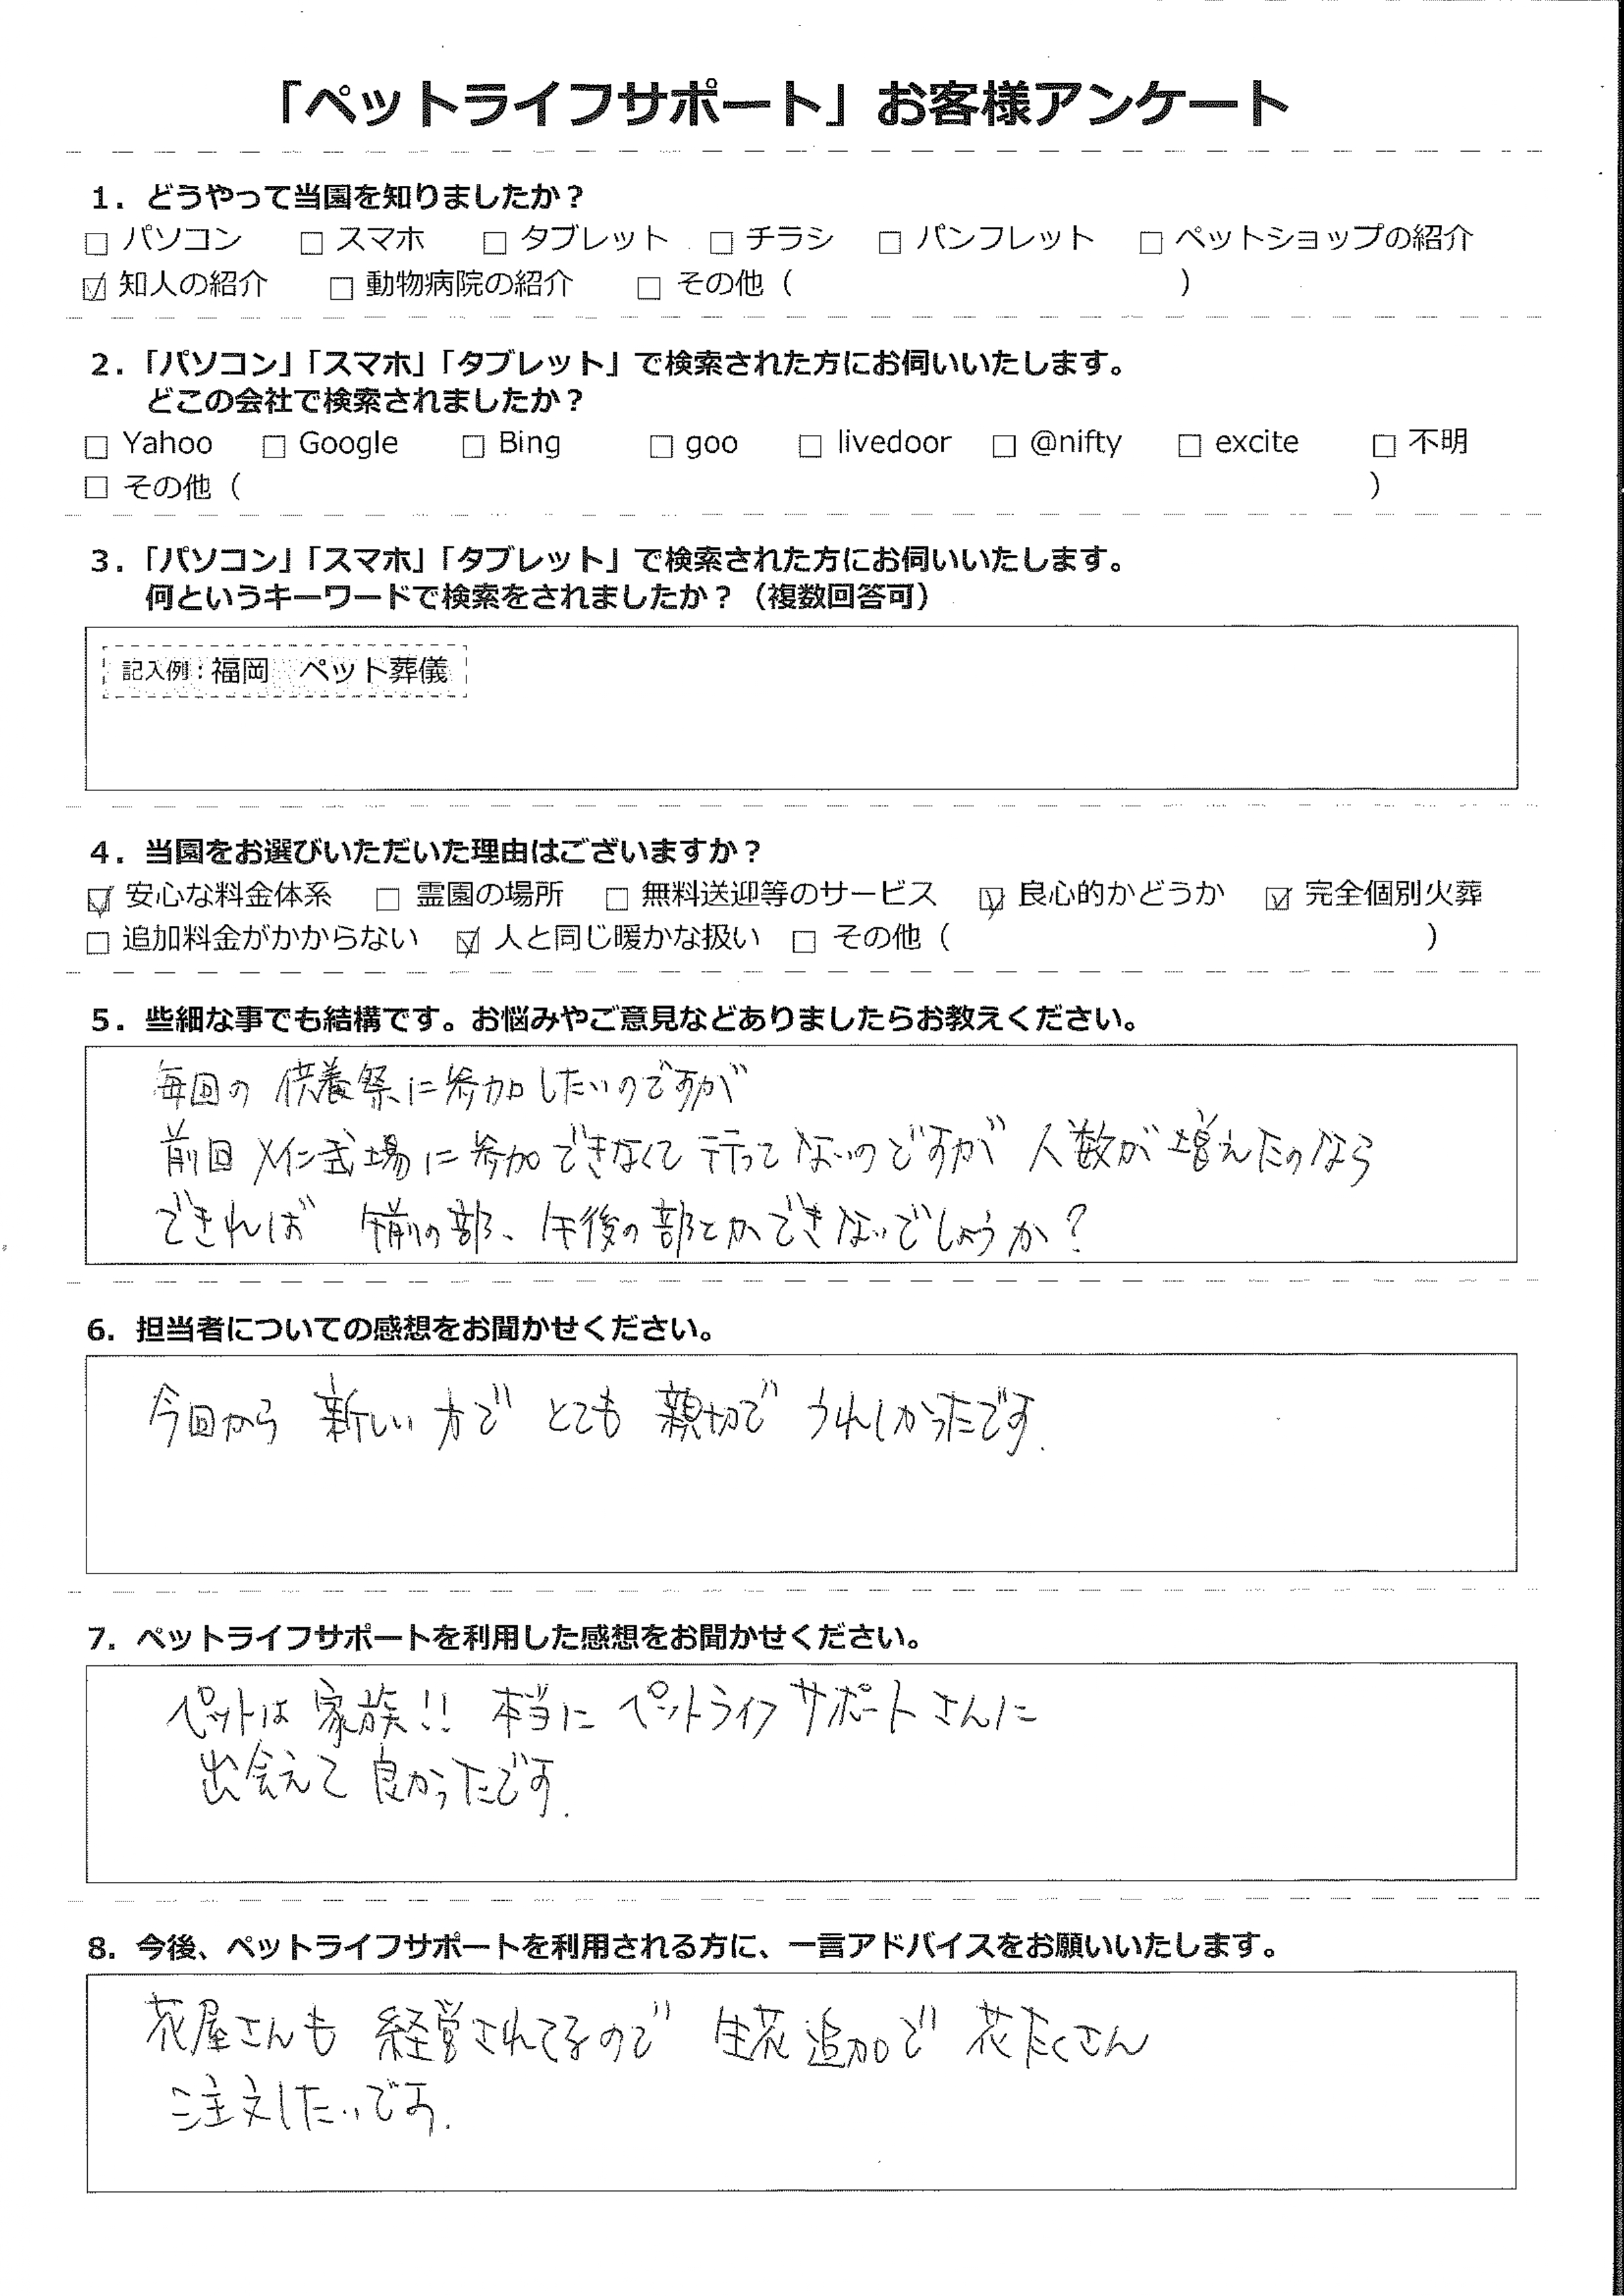 「ペットライフサポート」お客様アンケート
1．どうやって当園を知りましたか？
□ パソコン □ スマホ □ タブレット □ チラシ □ パンフレット □ ペットショップの紹介
☑ 知人の紹介 □ 動物病院の紹介 □ その他（ ）
2．「パソコン」「スマホ」「タブレット」で検索された方にお伺いいたします。
どこの会社で検索されましたか？
□ Yahoo □ Google □ Bing □ goo □ livedoor □ @nifty □ excite □ 不明
□ その他（ ）
3．「パソコン」「スマホ」「タブレット」で検索された方にお伺いいたします。
何というキーワードで検索をされましたか？（複数回答可）
記入例：福岡 ペット葬儀
4．当園をお選びいただいた理由はございますか？
☑ 安心な料金体系 □ 霊園の場所 □ 無料送迎等のサービス ☑ 良心的かどうか ☑ 完全個別火葬
□ 追加料金がかからない ☑ 人と同じ暖かな扱い □ その他（ ）
5．些細な事でも結構です。お悩みやご意見などありましたらお教えください。
毎回の 供養祭に参加したいのですが
前回 メイン式場に参加できなくて 行ってないのですが 人数が増えたのなら
できれば 午前の部、午後の部とかできないでしょうか？
6．担当者についての感想をお聞かせください。
今回から 新しい方で とても 親切で うれしかったです.
7．ペットライフサポートを利用した感想をお聞かせください。
ペットは 家族!! 本当に ペットライフサポートさんに
出会えて 良かったです.
8．今後、ペットライフサポートを利用される方に、一言アドバイスをお願いいたします。
花屋さんも 経営されてるので 生花追加で 花たくさん
注文したいです.